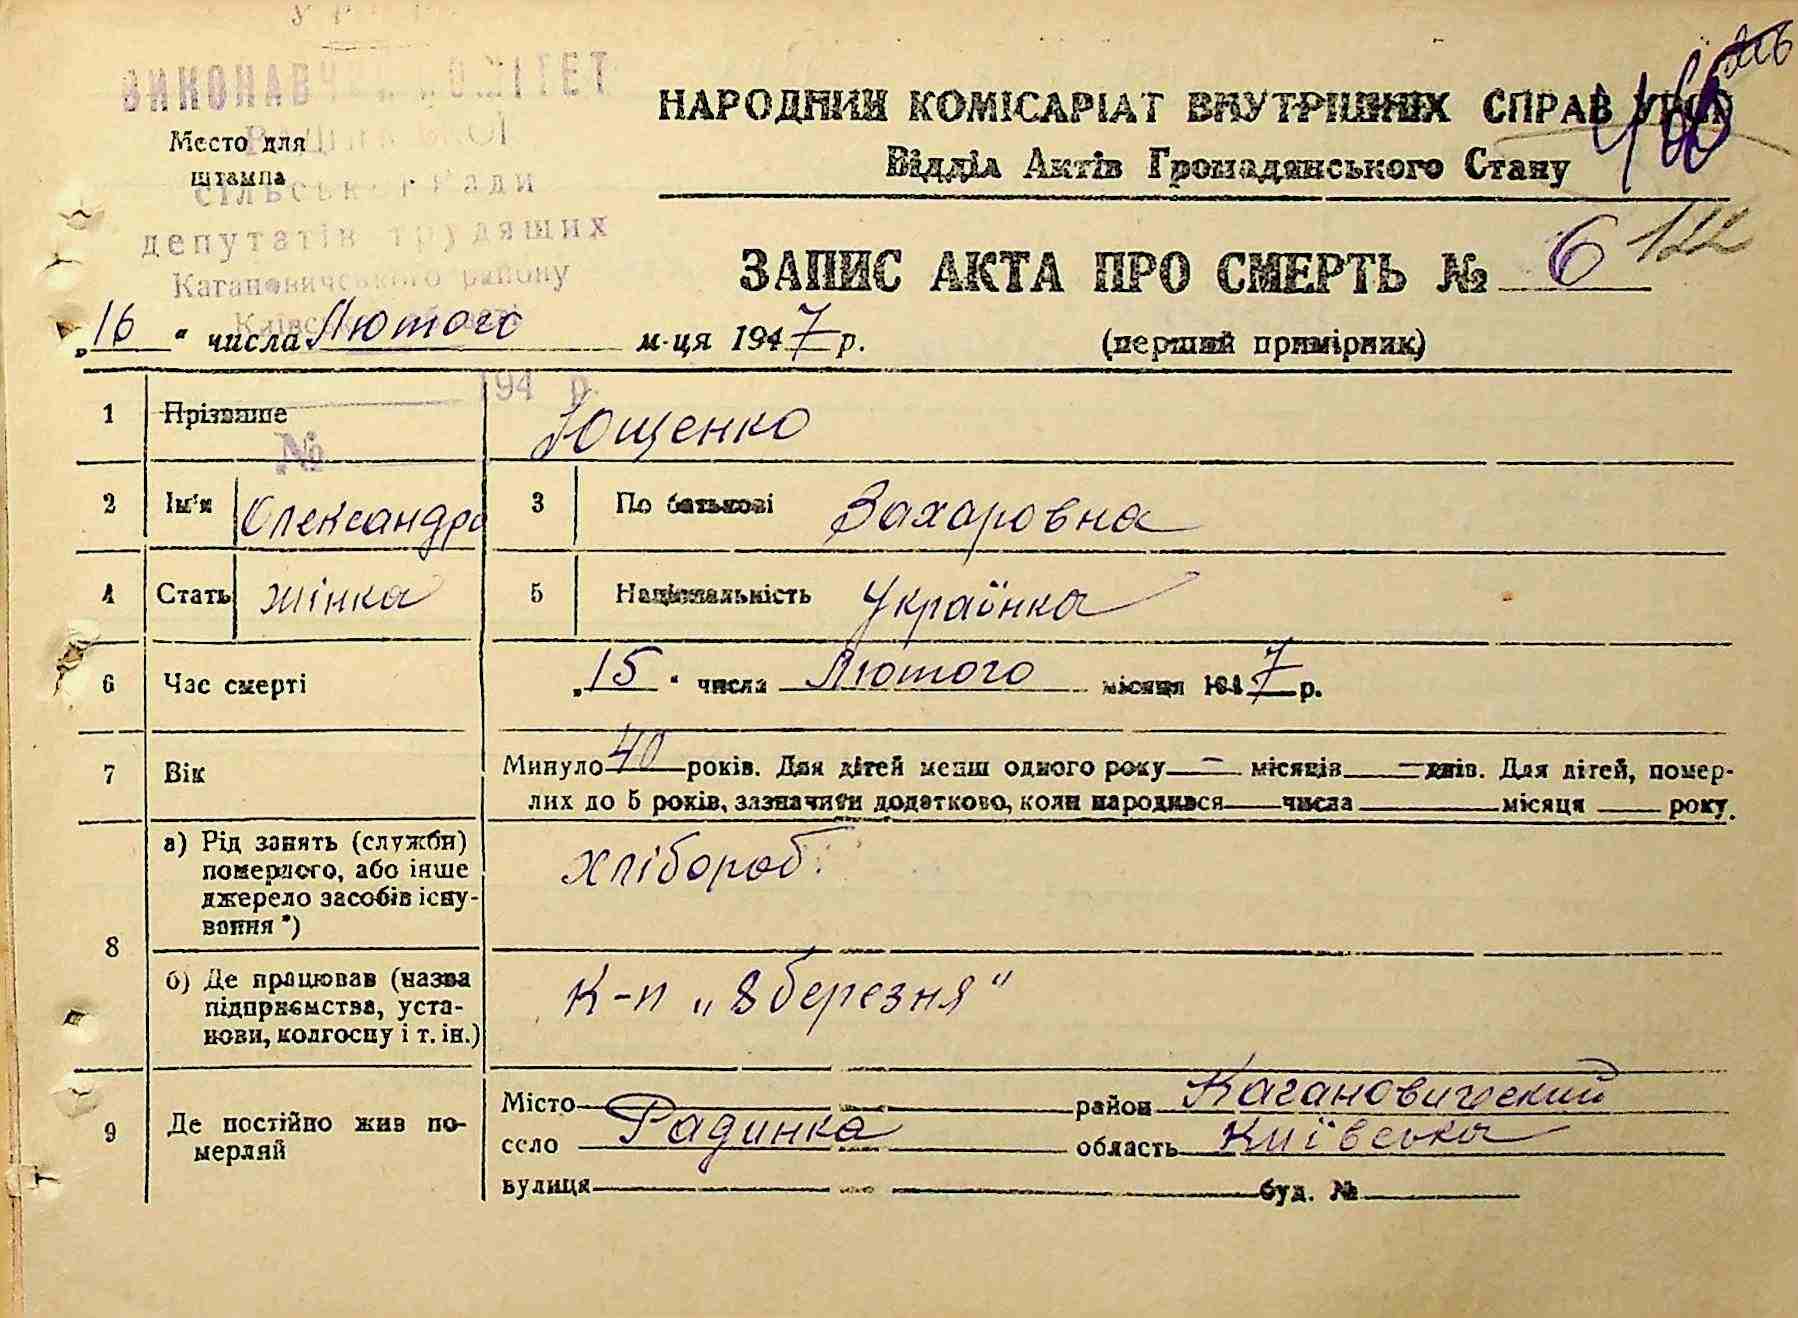 ВИКОНАВЧИЙ КОМІТЕТ
Место для
штампа
сільської Ради
депутатів трудящих
Кагановичського району
НАРОДНИЙ КОМІСАРІАТ ВНУТРІШНІХ СПРАВ УРСР
Відділ Актів Громадянського Стану
ЗАПИС АКТА ПРО СМЕРТЬ № 6 122
„16“ числа Лютого м-ця 1947 р. (перший примірник)
194 р.
1 Прізвище Ющенко
№
2 Ім'я Олександра 3 По батькові Захаровна
4 Стать жінка 5 Національність Українка
6 Час смерті „15“ числа Лютого місяця 1947 р.
7 Вік Минуло 40 років. Для дітей менш одного року — місяців — днів. Для дітей, помер-
лих до 5 років, зазначити додатково, коли народився числа місяця року.
8 а) Рід занять (служби)
померлого, або інше
джерело засобів існу-
вання *)
хлібороб.
б) Де працював (назва
підприємства, уста-
нови, колгоспу і т. ін.)
К-п „8 березня“
9 Де постійно жив по-
мерлий
Місто район Кагановический
село Радинка область Київська
вулиця буд. №